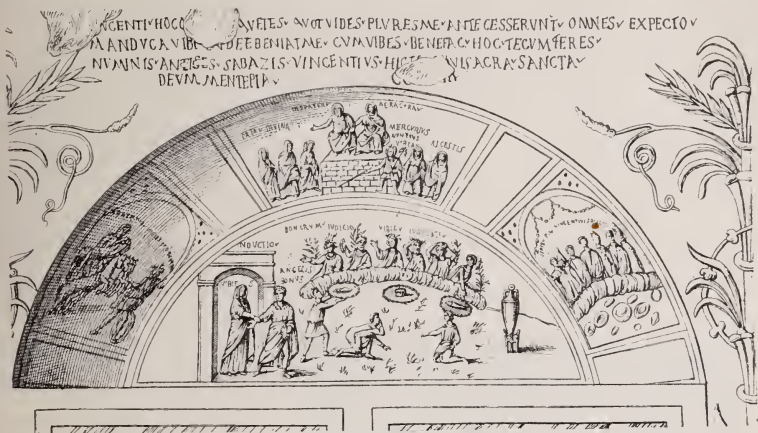 NGENTI HOCO AVETES QVOTVIDES PLVRES ME ANTE CESSERVNT OMNES EXPECTO
MANDVCA VIBE DEEBENIATME CVMVIBES BENEFAC HOC TECVM FERES
NVMINIS ANTISTES SABAZIS VINCENTIVS HIC VISACRA SANCTA
DEVM MENTEPIA
DISPATER AERACVRA
FATA DIVINA
MERCVRIVS
NVNTIVS
VIBIA ALCESTIS
BONORVM IVDICIO IVDICATI
INDVCTIO
ANGELVS
BONVS